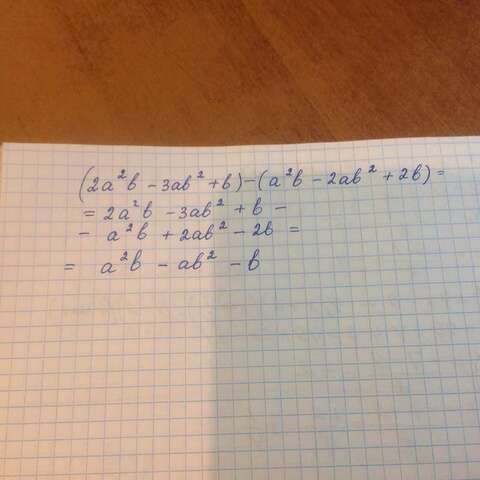 (2a²b - 3ab² + b) - (a²b - 2ab² + 2b) =
= 2a²b - 3ab² + b -
- a²b + 2ab² - 2b =
= a²b - ab² - b